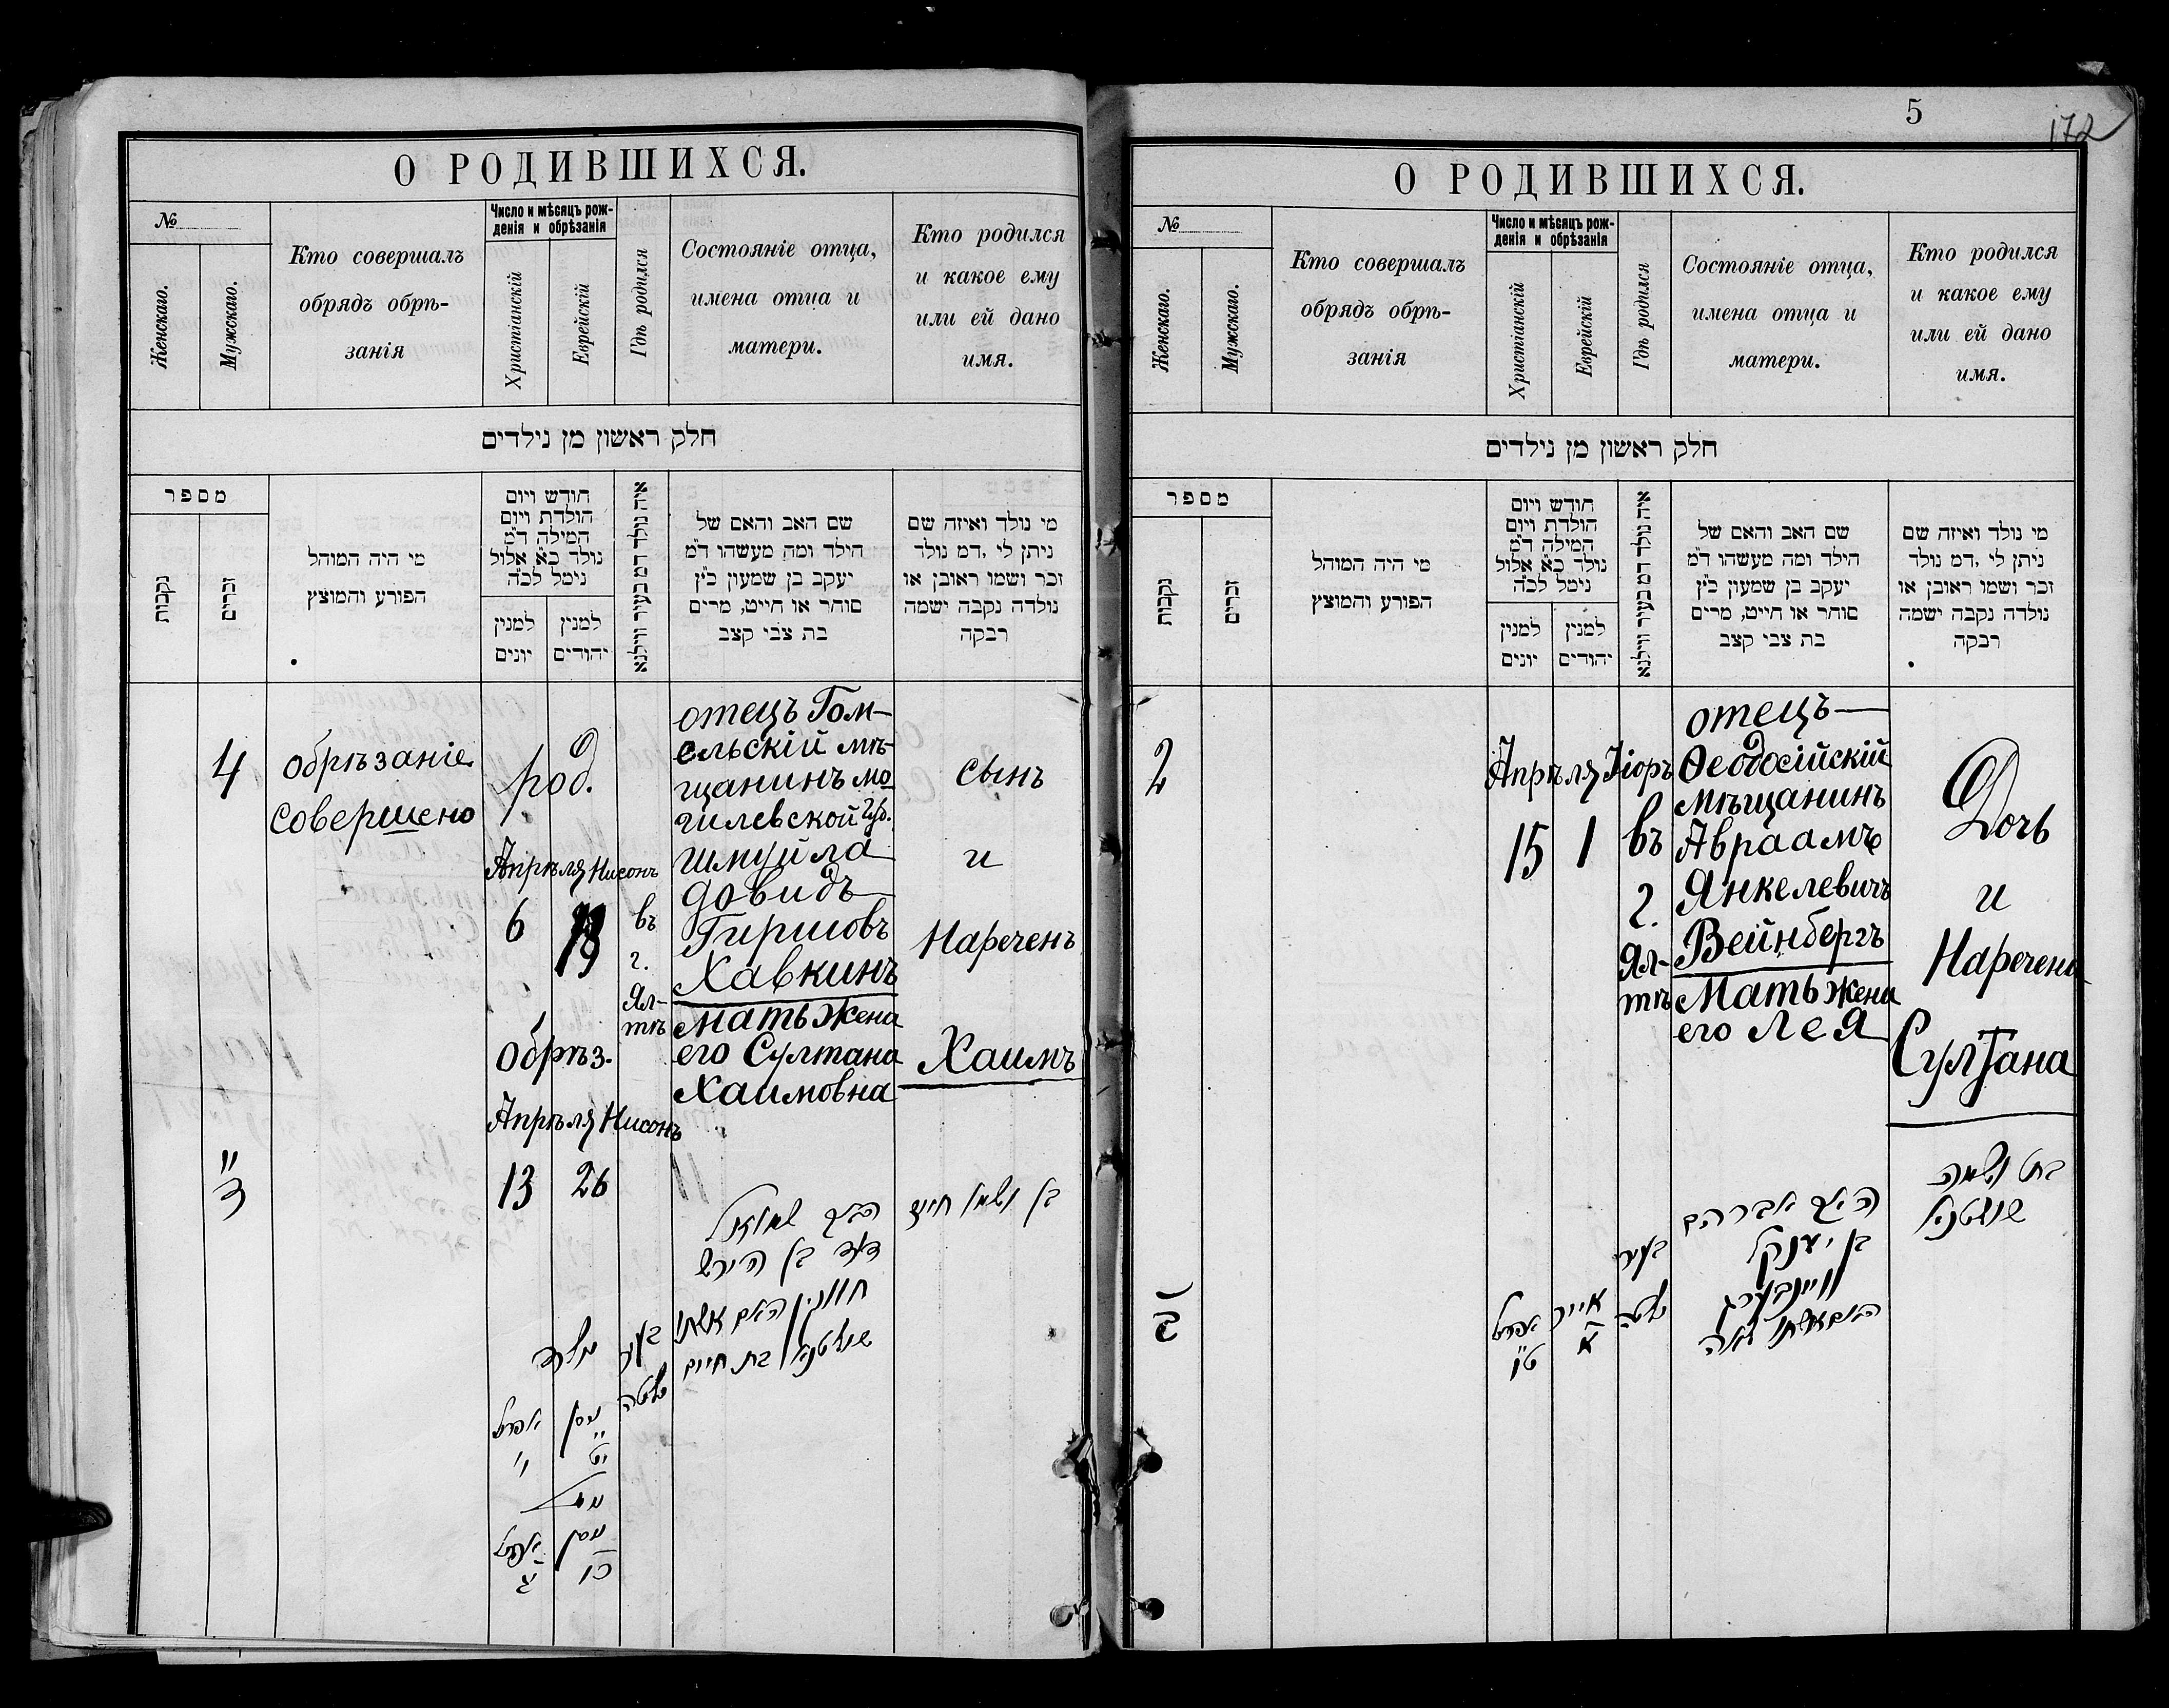 О РОДИВШИХСЯ.
№
Женскаго.
Мужскаго.
Кто совершалъ
обрядъ обрѣ-
занія
Число и мѣсяцъ рож-
денія и обрѣзанія
Христіанскій
Еврейскій
Гдѣ родился
Состояніе отца,
имена отца и
матери.
Кто родился
и какое ему
или ей дано
имя.
חלק ראשון מן נילדים
מספר
נקבות
זכרים
מי היה המוהל
הפורע והמוצץ
חודש ויום
הולדת ויום
המילה ד״מ
נולד כ״א אלול
נימל לכ״ה
למנין
יונים
למנין
יהודים
איה נולד דמ בעיר ווילנא
שם האב והאם של
הילד ומה מעשהו ד״מ
יעקב בן שמעון כ״ץ
סוחר או חייט, מרים
בת צבי קצב
מי נולד ואיזה שם
ניתן לי ,דמ נולד
זכר ושמו ראובן או
נולדה נקבה ישמה
רבקה
4
обрѣзаніе
совершено
род.
Апрѣля Нисонъ
6 19
обрѣз.
Апрѣля Нисонъ
13 26
въ
г.
Ял-
тѣ
отецъ Гом-
ельскій мѣ-
щанинъ мо
гилевской губ.
Шмуйла
Довидъ
Гиршовъ
Хавкинъ
Мать жена
его Султана
Хаимовна
сынъ
и
Нареченъ
Хаимъ
ד״
נולד
אפריל ניסן
ו׳ יט
נימול
אפריל ניסן
יג כו
בעיר
יאלטה
האב שמואל
דוד בן הירש
חווקין האם אשתו
שולטנא בת חיים
בן ושמו חיים
5
172
О РОДИВШИХСЯ.
№
Женскаго.
Мужскаго.
Кто совершалъ
обрядъ обрѣ-
занія
Число и мѣсяцъ рож-
денія и обрѣзанія
Христіанскій
Еврейскій
Гдѣ родился
Состояніе отца,
имена отца и
матери.
Кто родился
и какое ему
или ей дано
имя.
חלק ראשון מן נילדים
מספר
נקבות
זכרים
מי היה המוהל
הפורע והמוצץ
חודש ויום
הולדת ויום
המילה ד״מ
נולד כ״א אלול
נימל לכ״ה
למנין
יונים
למנין
יהודים
איה נולד דמ בעיר ווילנא
שם האב והאם של
הילד ומה מעשהו ד״מ
יעקב בן שמעון כ״ץ
סוחר או חייט, מרים
בת צבי קצב
מי נולד ואיזה שם
ניתן לי ,דמ נולד
זכר ושמו ראובן או
נולדה נקבה ישמה
רבקה
2
Апрѣля Іоръ
15 1
въ
г.
Ял-
тѣ
отецъ
Ѳеодосійскій
мѣщанинъ
Авраамъ
Янкелевичъ
Вейнбергъ
Мать жена
его Лея
Дочь
и
Наречена
Султана
ב
אפריל אייר
ט״ו א
בעיר
יאלטה
האב אברהם
בן יענקל
וויינבערג
האם אשתו לאה
בת ושמה
שולטנא